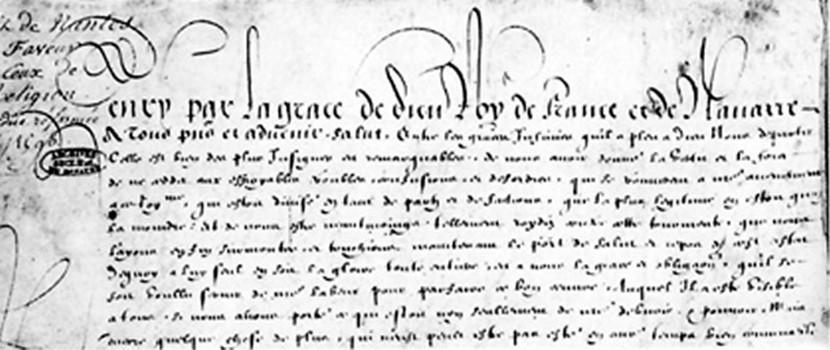 de Nantes
Faveur
Ceux de
religion
1598
Henry par la grace de Dieu Roy de France et de Navarre
A tous pns et advenir, Salut. Entre les graces Infinies qu'il a pleu a Dieu Nous departir
Celle est bien des plus Insignes et remarquables, de nous avoir donné la vertu et la force
de ne ceder aux effroyables troubles, confusions et desordres, qui se trouverent a nre advenement
a ce Royme, qui estoit divisé en tant de partz et de factions, que la plus legitime en estoit quasi
la moindre, Et de nous estre neantmoins tellement roydiz contre cette tourmente, que nous
layons en fin surmontée, et touchions maintenant le port de salut et repos de cest estat
Dequoy a luy seul en soit la gloire toute entiere, et a nous la grace et obligaon, quil se
soit voullu servir de nre labeur pour parfaire ce bon œuvre, Auquel Il a esté visible
a tous, si nous avons porté ce qui estoit non seullement de nre debvoir et pouvoir, Mais
encore quelque chose de plus, qui neust peult estre pas esté en autre temps bien convenable